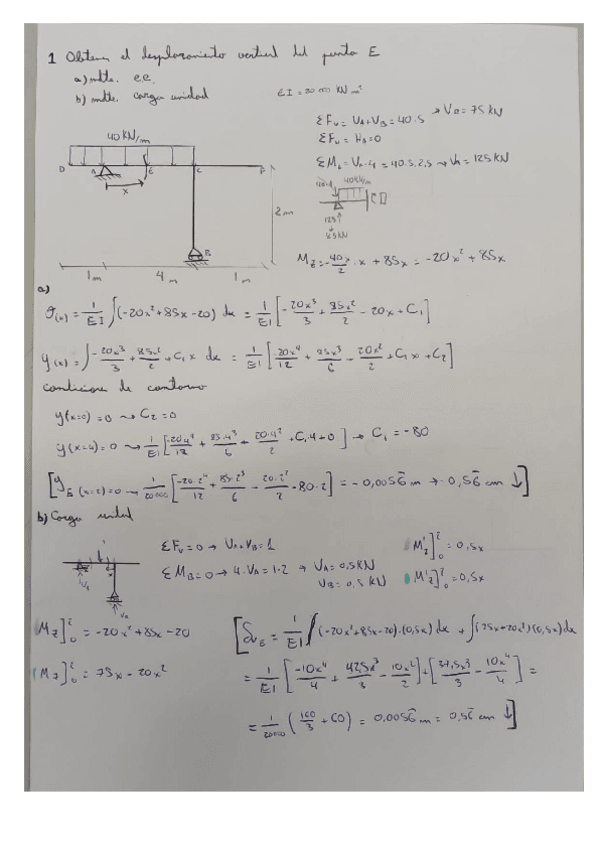 1 Obtener el desplazamiento vertical del punto E
a) mdte. e.e.
b) mdte. carga unidad
EI = 20 000 KN m²
ΣFv = VA+VB = 40.5 → VB = 75 KN
ΣFH = HB = 0
ΣMB = VA.4 = 40.5.2,5 → VA = 125 KN
40KN/m
D A E C F
x
B
2m
1m 4m 1m
40.1 40KN/m
125↑
85KN
Mz = -40/2 x · x + 85x = -20x² + 85x
a)
θ(x) = 1/EI ∫(-20x²+85x-20) dx = 1/EI [-20x³/3 + 85x²/2 - 20x + C₁]
y(x) = ∫-20x³/3 + 85x²/2 + C₁x dx = 1/EI [-20x⁴/12 + 85x³/6 - 20x²/2 + C₁x + C₂]
condiciones de contorno
y(x=0) = 0 → C₂ = 0
y(x=4) = 0 → 1/EI [-20.4⁴/12 + 85.4³/6 + 20.4²/2 + C₁.4+0] → C₁ = -80
[yE (x=2)=0 → 1/20000 [-20.2⁴/12 + 85.2³/6 - 20.2²/2 - 80.2] = -0,0056 m → 0,56 cm ↓]
b) Carga unidad
1
VA
VB
ΣFv = 0 → VA+VB = 1
ΣMB = 0 → 4.VA = 1.2 → VA = 0,5KN
VB = 0,5 KN
M'z]²₀ = 0,5x
M'z]²₀ = 0,5x
Mz]²₀ = -20x²+85x-20
Mz]²₀ = 75x - 20x²
[δvE = 1/EI ∫(-20x²+85x-20).(0,5x) dx + ∫(75x-20x²)(0,5x) dx
= 1/EI [-10x⁴/4 + 42,5x³/3 - 10x²/2] + [37,5x³/3 - 10x⁴/4] =
= 1/20000 (160/3 + 60) = 0,0056 m = 0,56 cm ↓]